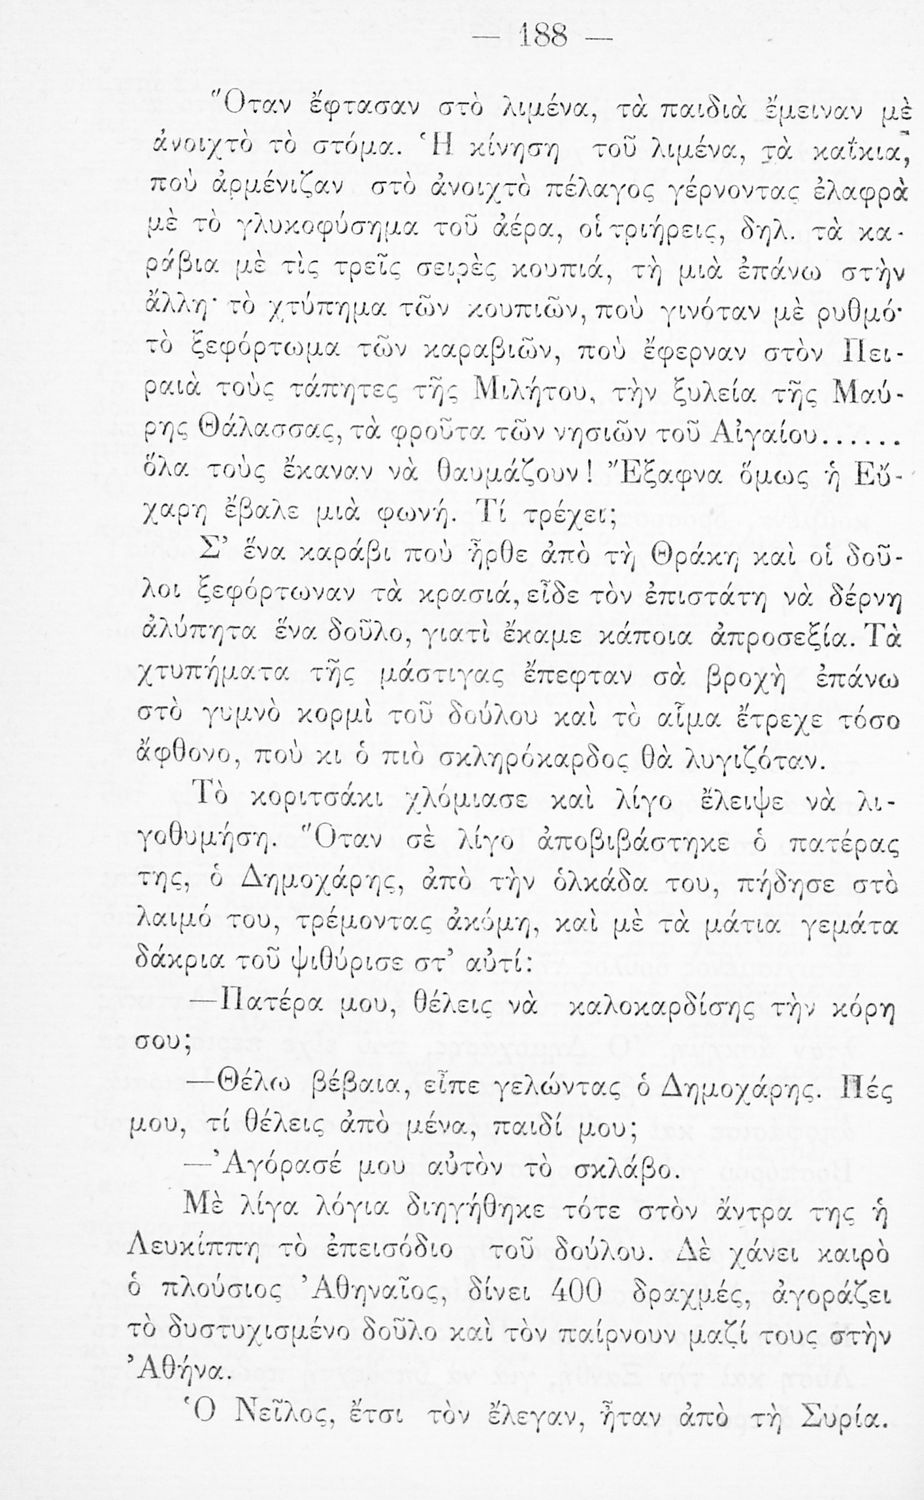 — 188 —
Ὅταν ἔφτασαν στὸ λιμένα, τὰ παιδιὰ ἔμειναν μὲ
ἀνοιχτὸ τὸ στόμα. Ἡ κίνηση τοῦ λιμένα, τὰ καΐκια,
ποὺ ἀρμένιζαν στὸ ἀνοιχτὸ πέλαγος γέρνοντας ἐλαφρὰ
μὲ τὸ γλυκοφύσημα τοῦ ἀέρα, οἱ τριήρεις, δηλ. τὰ κα-
ράβια μὲ τὶς τρεῖς σειρὲς κουπιά, τὴ μιὰ ἐπάνω στὴν
ἄλλη· τὸ χτύπημα τῶν κουπιῶν, ποὺ γινόταν μὲ ρυθμό·
τὸ ξεφόρτωμα τῶν καραβιῶν, ποὺ ἔφερναν στὸν Πει-
ραιὰ τοὺς τάπητες τῆς Μιλήτου, τὴν ξυλεία τῆς Μαύ-
ρης Θάλασσας, τὰ φροῦτα τῶν νησιῶν τοῦ Αἰγαίου......
ὅλα τοὺς ἔκαναν νὰ θαυμάζουν! Ἔξαφνα ὅμως ἡ Εὔ-
χαρη ἔβαλε μιὰ φωνή. Τί τρέχει;
Σ’ ἕνα καράβι ποὺ ἦρθε ἀπὸ τὴ Θράκη καὶ οἱ δοῦ-
λοι ξεφόρτωναν τὰ κρασιά, εἶδε τὸν ἐπιστάτη νὰ δέρνη
ἀλύπητα ἕνα δοῦλο, γιατὶ ἔκαμε κάποια ἀπροσεξία. Τὰ
χτυπήματα τῆς μάστιγας ἔπεφταν σὰ βροχὴ ἐπάνω
στὸ γυμνὸ κορμὶ τοῦ δούλου καὶ τὸ αἷμα ἔτρεχε τόσο
ἄφθονο, ποὺ κι ὁ πιὸ σκληρόκαρδος θὰ λυγιζόταν.
Τὸ κοριτσάκι χλόμιασε καὶ λίγο ἔλειψε νὰ λι-
γοθυμήση. Ὅταν σὲ λίγο ἀποβιβάστηκε ὁ πατέρας
της, ὁ Δημοχάρης, ἀπὸ τὴν ὁλκάδα του, πήδησε στὸ
λαιμό του, τρέμοντας ἀκόμη, καὶ μὲ τὰ μάτια γεμάτα
δάκρια τοῦ ψιθύρισε στ’ αὐτί:
—Πατέρα μου, θέλεις νὰ καλοκαρδίσης τὴν κόρη
σου;
—Θέλω βέβαια, εἶπε γελώντας ὁ Δημοχάρης. Πές
μου, τί θέλεις ἀπὸ μένα, παιδί μου;
—Ἀγόρασέ μου αὐτὸν τὸ σκλάβο.
Μὲ λίγα λόγια διηγήθηκε τότε στὸν ἄντρα της ἡ
Λευκίππη τὸ ἐπεισόδιο τοῦ δούλου. Δὲ χάνει καιρὸ
ὁ πλούσιος Ἀθηναῖος, δίνει 400 δραχμές, ἀγοράζει
τὸ δυστυχισμένο δοῦλο καὶ τὸν παίρνουν μαζί τους στὴν
Ἀθήνα.
Ὁ Νεῖλος, ἔτσι τὸν ἔλεγαν, ἦταν ἀπὸ τὴ Συρία.